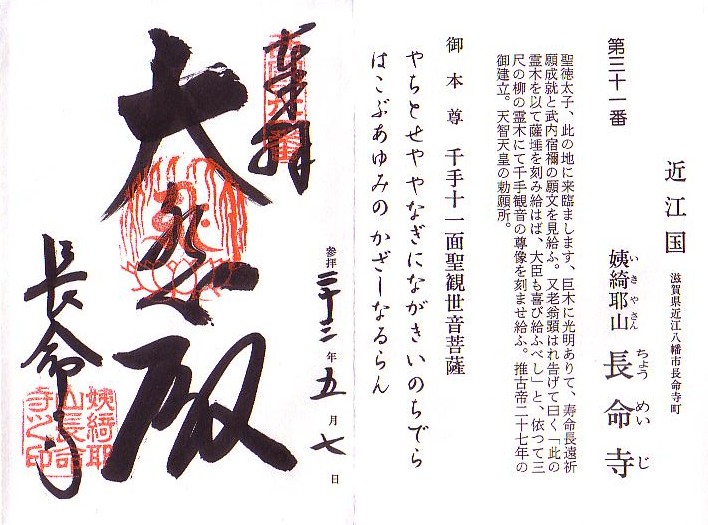 近江国 滋賀県近江八幡市長命寺町
姨綺耶山 長命寺
いきやさん ちょうめいじ
第三十一番
聖徳太子、此の地に来臨まします、巨木に光明ありて、寿命長遠祈
願成就と武内宿禰の願文を見給ふ。又老翁顕はれ告げて曰く「此の
霊木を以て薩埵を刻み給はば、大臣も喜び給ふべし」と、依つて三
尺の柳の霊木にて千手観音の尊像を刻ませ給ふ。推古帝二十七年の
御建立。天智天皇の勅願所。
御本尊 千手十一面聖観世音菩薩
やちとせややなぎにながきいのちでら
はこぶあゆみのかざしなるらん
奉拝
参拝 二十三年五月七日
大悲殿
長命寺
姨綺耶
山長命
寺之印